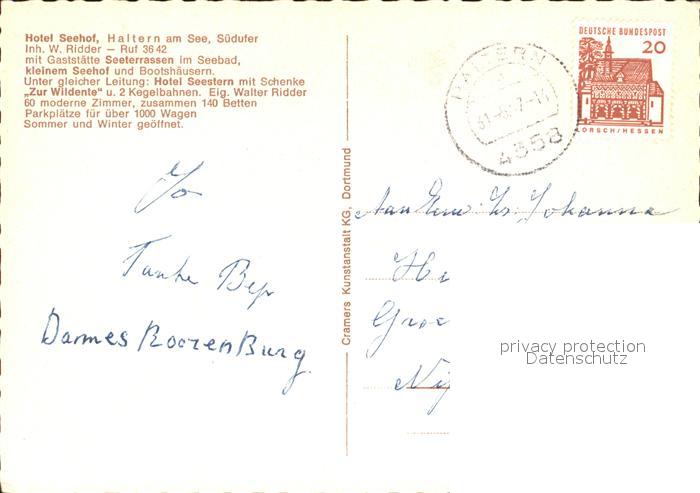 Hotel Seehof, Haltern am See, Südufer
Inh. W. Ridder – Ruf 36 42
mit Gaststätte Seeterrassen im Seebad,
kleinem Seehof und Bootshäusern.
Unter gleicher Leitung: Hotel Seestern mit Schenke
„Zur Wildente" u. 2 Kegelbahnen. Eig. Walter Ridder
60 moderne Zimmer, zusammen 140 Betten
Parkplätze für über 1000 Wagen
Sommer und Winter geöffnet.
Jo
Tante Bep
Dames Roozenburg
Cramers Kunstanstalt KG, Dortmund
HALTERN
4358
DEUTSCHE BUNDESPOST
20
LORSCH/HESSEN
Aan Eerw. Zr. Johanna
He
Groe
Nij
privacy protection
Datenschutz